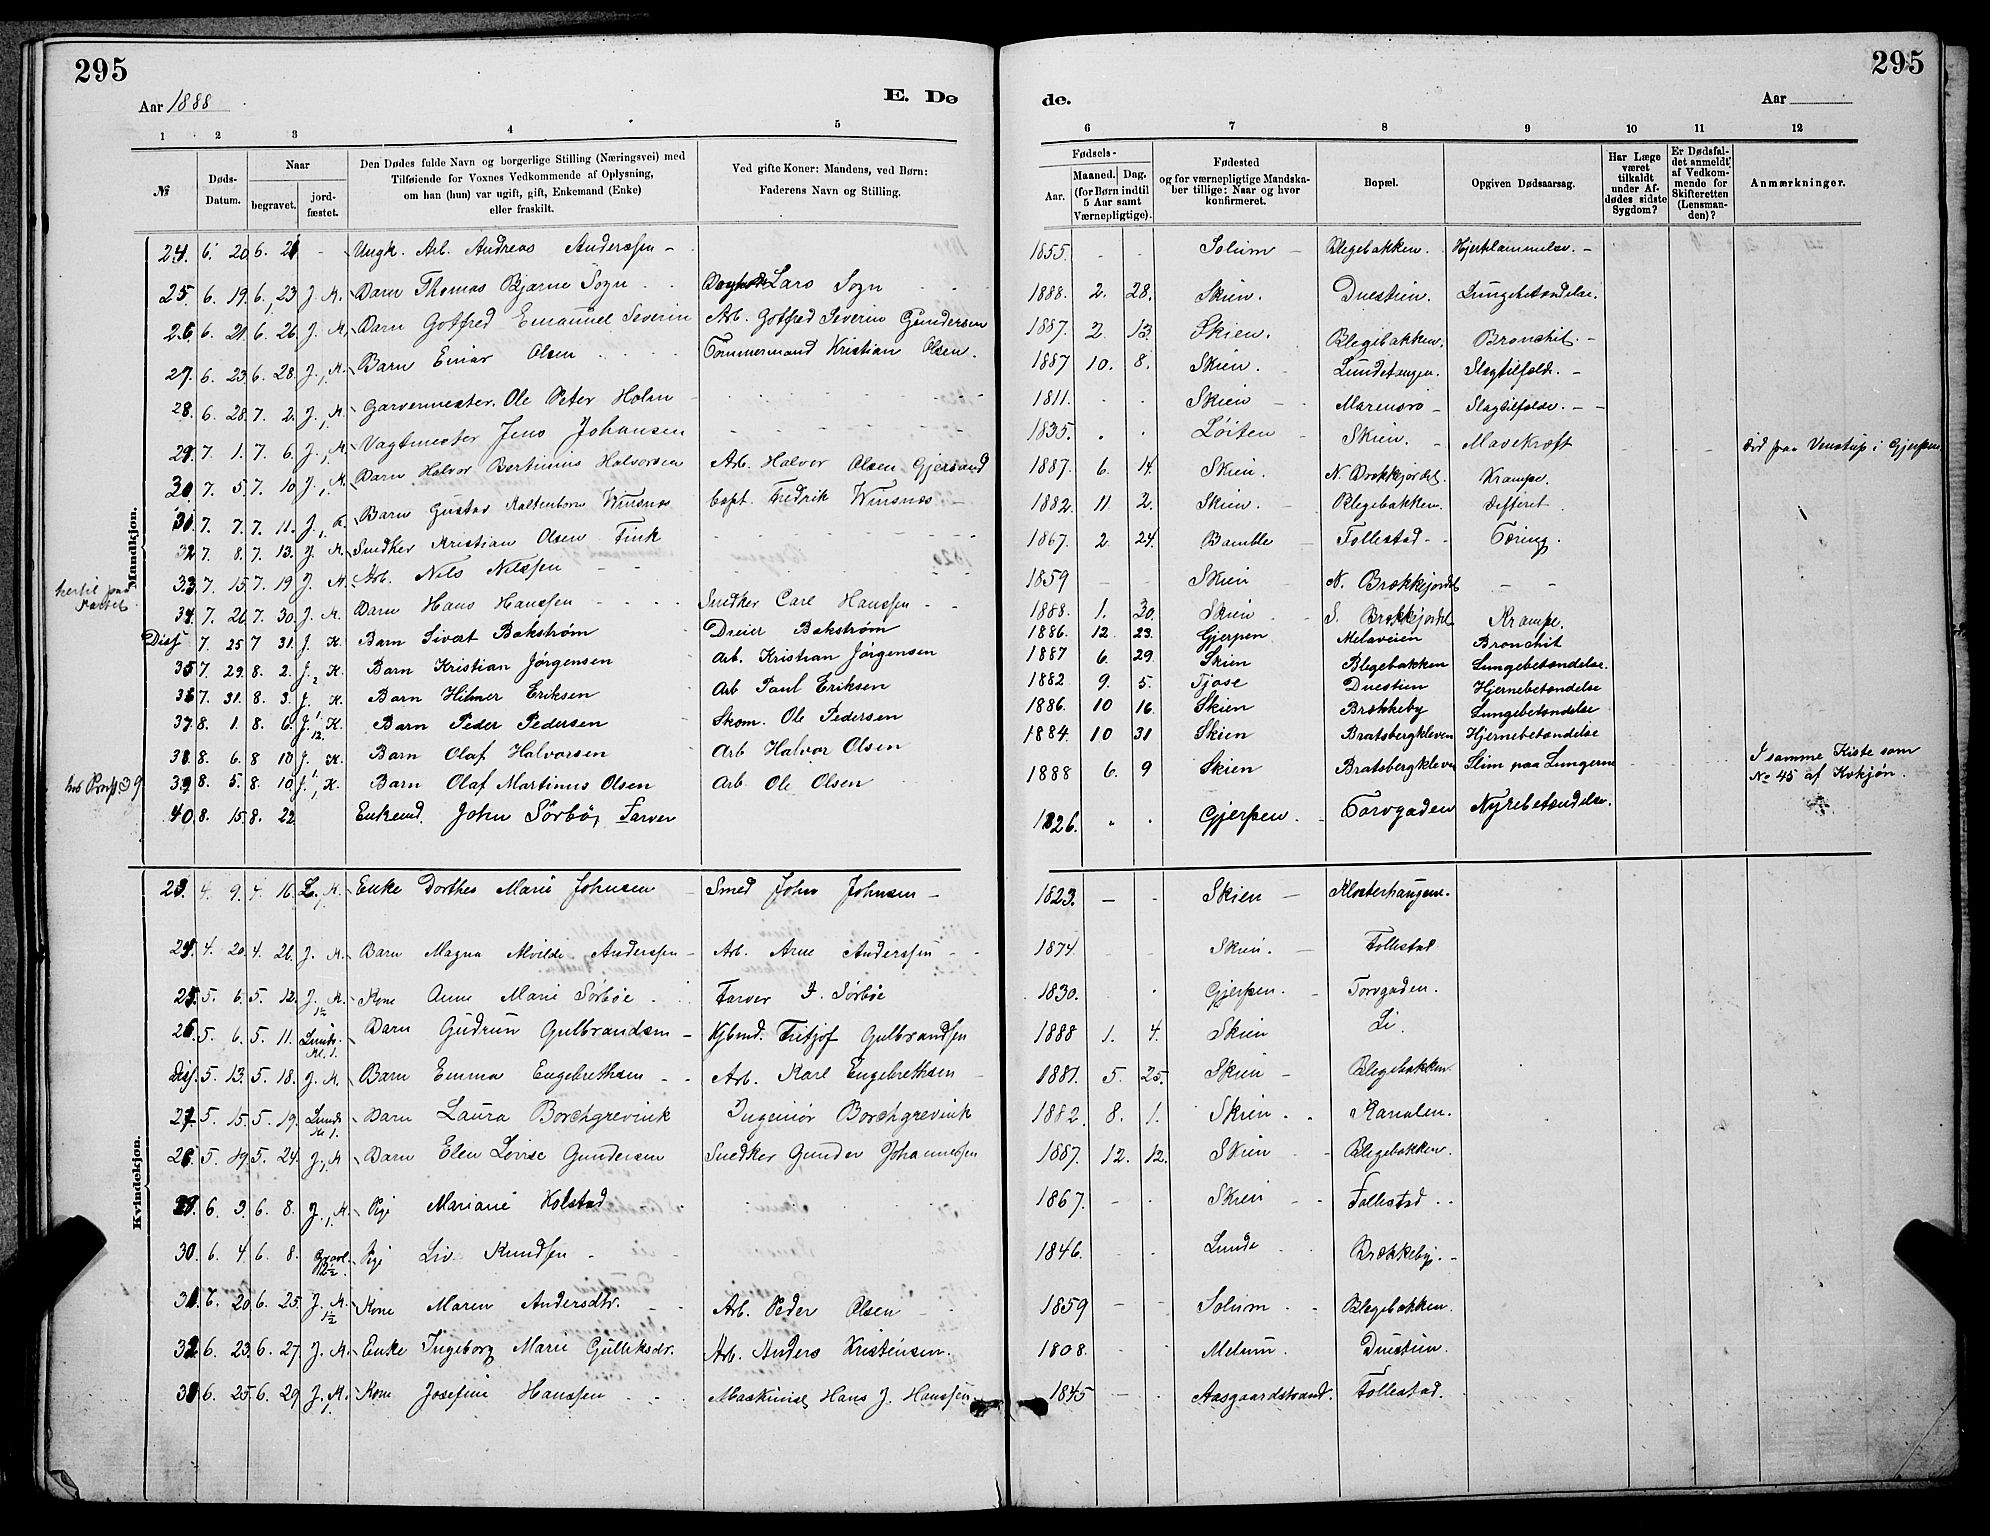 295
295
Aar 1888
E. Dø
de.
Aar
1 2 3 4 5 6 7 8 9 10 11 12
№
Døds-Datum.
Naar
begravet.
jord-fæstet.
Den Dødes fulde Navn og borgerlige Stilling (Næringsvei) med
Tilføiende for Voxnes Vedkommende af Oplysning,
om han (hun) var ugift, gift, Enkemand (Enke)
eller fraskilt.
Ved gifte Koner: Mandens, ved Børn:
Faderens Navn og Stilling.
Fødsels-
Aar.
Maaned. Dag.
(for Børn indtil
5 Aar samt
Værnepligtige).
Fødested
og for værnepligtige Mandska-
ber tillige: Naar og hvor
konfirmeret.
Bopæl.
Opgiven Dødsaarsag.
Har Læge
været
tilkaldt
under Af-
dødes sidste
Sygdom?
Er Dødsfal-
det anmeldt
af Vedkom-
mende for
Skifteretten
(Lensman-
den)?
Anmærkninger.
Mandkjøn.
24. 6. 20 6. 21 - Ungk. Arb. Andreas Anderssen - 1855. - - Solum - Blegebakken. Hjerklammelse. -
25. 6. 19. 6. 23 J. K. Barn Thomas Bjarne Sogn Lars Sogn 1888. 2. 28. Skien. Duestien. Lungebetændelse.
26 6. 21 6. 26. J. K. Barn Gotfred Emanuel Severin Arb. Gotfred Severin Gundersen 1887. 2 13. Skien. Blegebakken. Bronchit. -
27. 6. 23 6. 28. J. K. Barn Einar Olsen Tømmermand Kristian Olsen. 1887 10. 8. Skien. Lundetangen. Slagtilfælde. -
28. 6. 28. 7. 2. J. K. Garvermester. Ole Peter Holm 1811. Skien - Marensro - Slagtilfælde. - -
29. 7. 1. 7. 6. J. K. Vagtmester Jens Johansen 1835. Løiten - Skien. - Mavekræft Død paa Venstøp i Gjerpen
30. 7. 5 7. 10 J. K. Barn Halvor Bertinius Halvorsen Arb. Halvor Olsen Gjersund 1887. 6. 14. Skien. N. Brækkjordet. Krampe.
31 7. 7. 7. 11. J. K. Barn Gustav Kaltenborn Winsnes Capt. Fredrik Winsnes - 1882. 11 2. Skien. - Blegebakken. Differit.
32 7. 8. 7. 13. J. K. Snedker Kristian Olsen Fink 1867. 2 24. Bamble - Follestad - - Tæring.
33. 7. 15. 7. 19 J. K. Arb. Nils Nilssen 1859 - - Skien N. Brækkjordet - -
34. 7. 26 7. 30. J. K. Barn Hans Hanssen Snedker Carl Hanssen - - 1888. 1. 30. Skien - S. Brækkjordet Krampe.
Diss 7. 25 7 31. J. K. Barn Sivert Bakstrøm Dreier Bakstrøm 1886. 12. 23. Gjerpen Melaveien Bronchit
35 7. 29. 8. 2. J. K. Barn Kristian Jørgensen Arb. Kristian Jørgensen 1887 6. 29 Skien Blegebakken Lungebetændelse.
36 7. 31. 8. 3. J. K. Barn Hilmer Eriksen Arb Paul Eriksen 1882 9. 5. Tjøse Duestien Hjernebetændelse
37. 8. 1. 8. 6. J. 12. K. Barn Peder Pedersen Skom. Ole Pedersen 1886. 10 16. Skien Brækkeby Lungebetændelse
38. 8. 6. 8 10 J. K. Barn Olaf Halvorsen Arb Halvor Olsen 1884. 10 31 Skien Bratsbergkleven Hjernebetændelse
39. 8. 5. 8. 10 J. K. Barn Olaf Martinus Olsen Arb Ole Olsen 1888 6. 9 Skien Bratsbergkleven Slim paa Lungerne I samme Kiste som
№ 45 af Kvkjøn.
40 8. 15. 8. 22 Enkemd. John Sörbö, Farver 1826. Gjerpen Torvgaden Nyrebetændelse.
Kvindekjøn.
23. 4. 9. 4. 16 L. K. Enke Dorthea Marie Johnsen Smed John Johnsen - 1823. - - Skien - Klosterhaugene.
24. 4. 20 4. 26. J. K. Barn Magna Alvilde Anderssen Arb. Arne Anderssen - - 1874 - - Skien. - Follestad
25. 5. 6. 5. 12. J. K. 1½ Kone Anne Marie Sørbøe Farver J. Sørbøe 1830. Gjerpen. - Torvgaden.
26 5. 6. 5. 11. Lunds. Kl. 1. Barn Gudrun Gulbrandsen - Kjbmd. Fritjof Gulbrandsen 1888 1. 4. Skien Li.
Diss. 5. 13. 5. 18. J. K. Barn Emma Engebrethsen Arb. Karl Engebrethsen 1881. 5. 25. Skien - Blegebakken.
27 5. 15. 5. 19. Lunds Kl 1. Barn Laura Borchgrevink Ingeniør Borchgrevink 1882. 8. 1. Skien Kanalen.
28 5. 19. 5. 24. J. K Barn Elen Lovise Gundersen Snedker Gunder Johannessen 1887. 12. 12. Skien Blegebakken.
29. 6. 3. 6. 8. J. K. Pige Mariane Kolstad 1867. Skien - Follestad
30. 6. 4. 6. 8. 12½ Pige Liv Knudsen 1846. Lunde Brækkeby. -
31. 6. 20. 6. 25. J. K. 1½ Kone Maren Andersdtr. Arb. Peder Olsen 1859 - - Solum Blegebakken.
32. 6. 23. 6. 27. J. K. Enke Ingeborg Marie Gulliksdr. Arb. Anders Kristensen. 1808. Melum. Duestien.
33 6. 25 6. 29 J. K. Kone Josefine Hanssen Maskinist Hans J. Hanssen. 1845 - - Aasgaardstrand. Follestad.